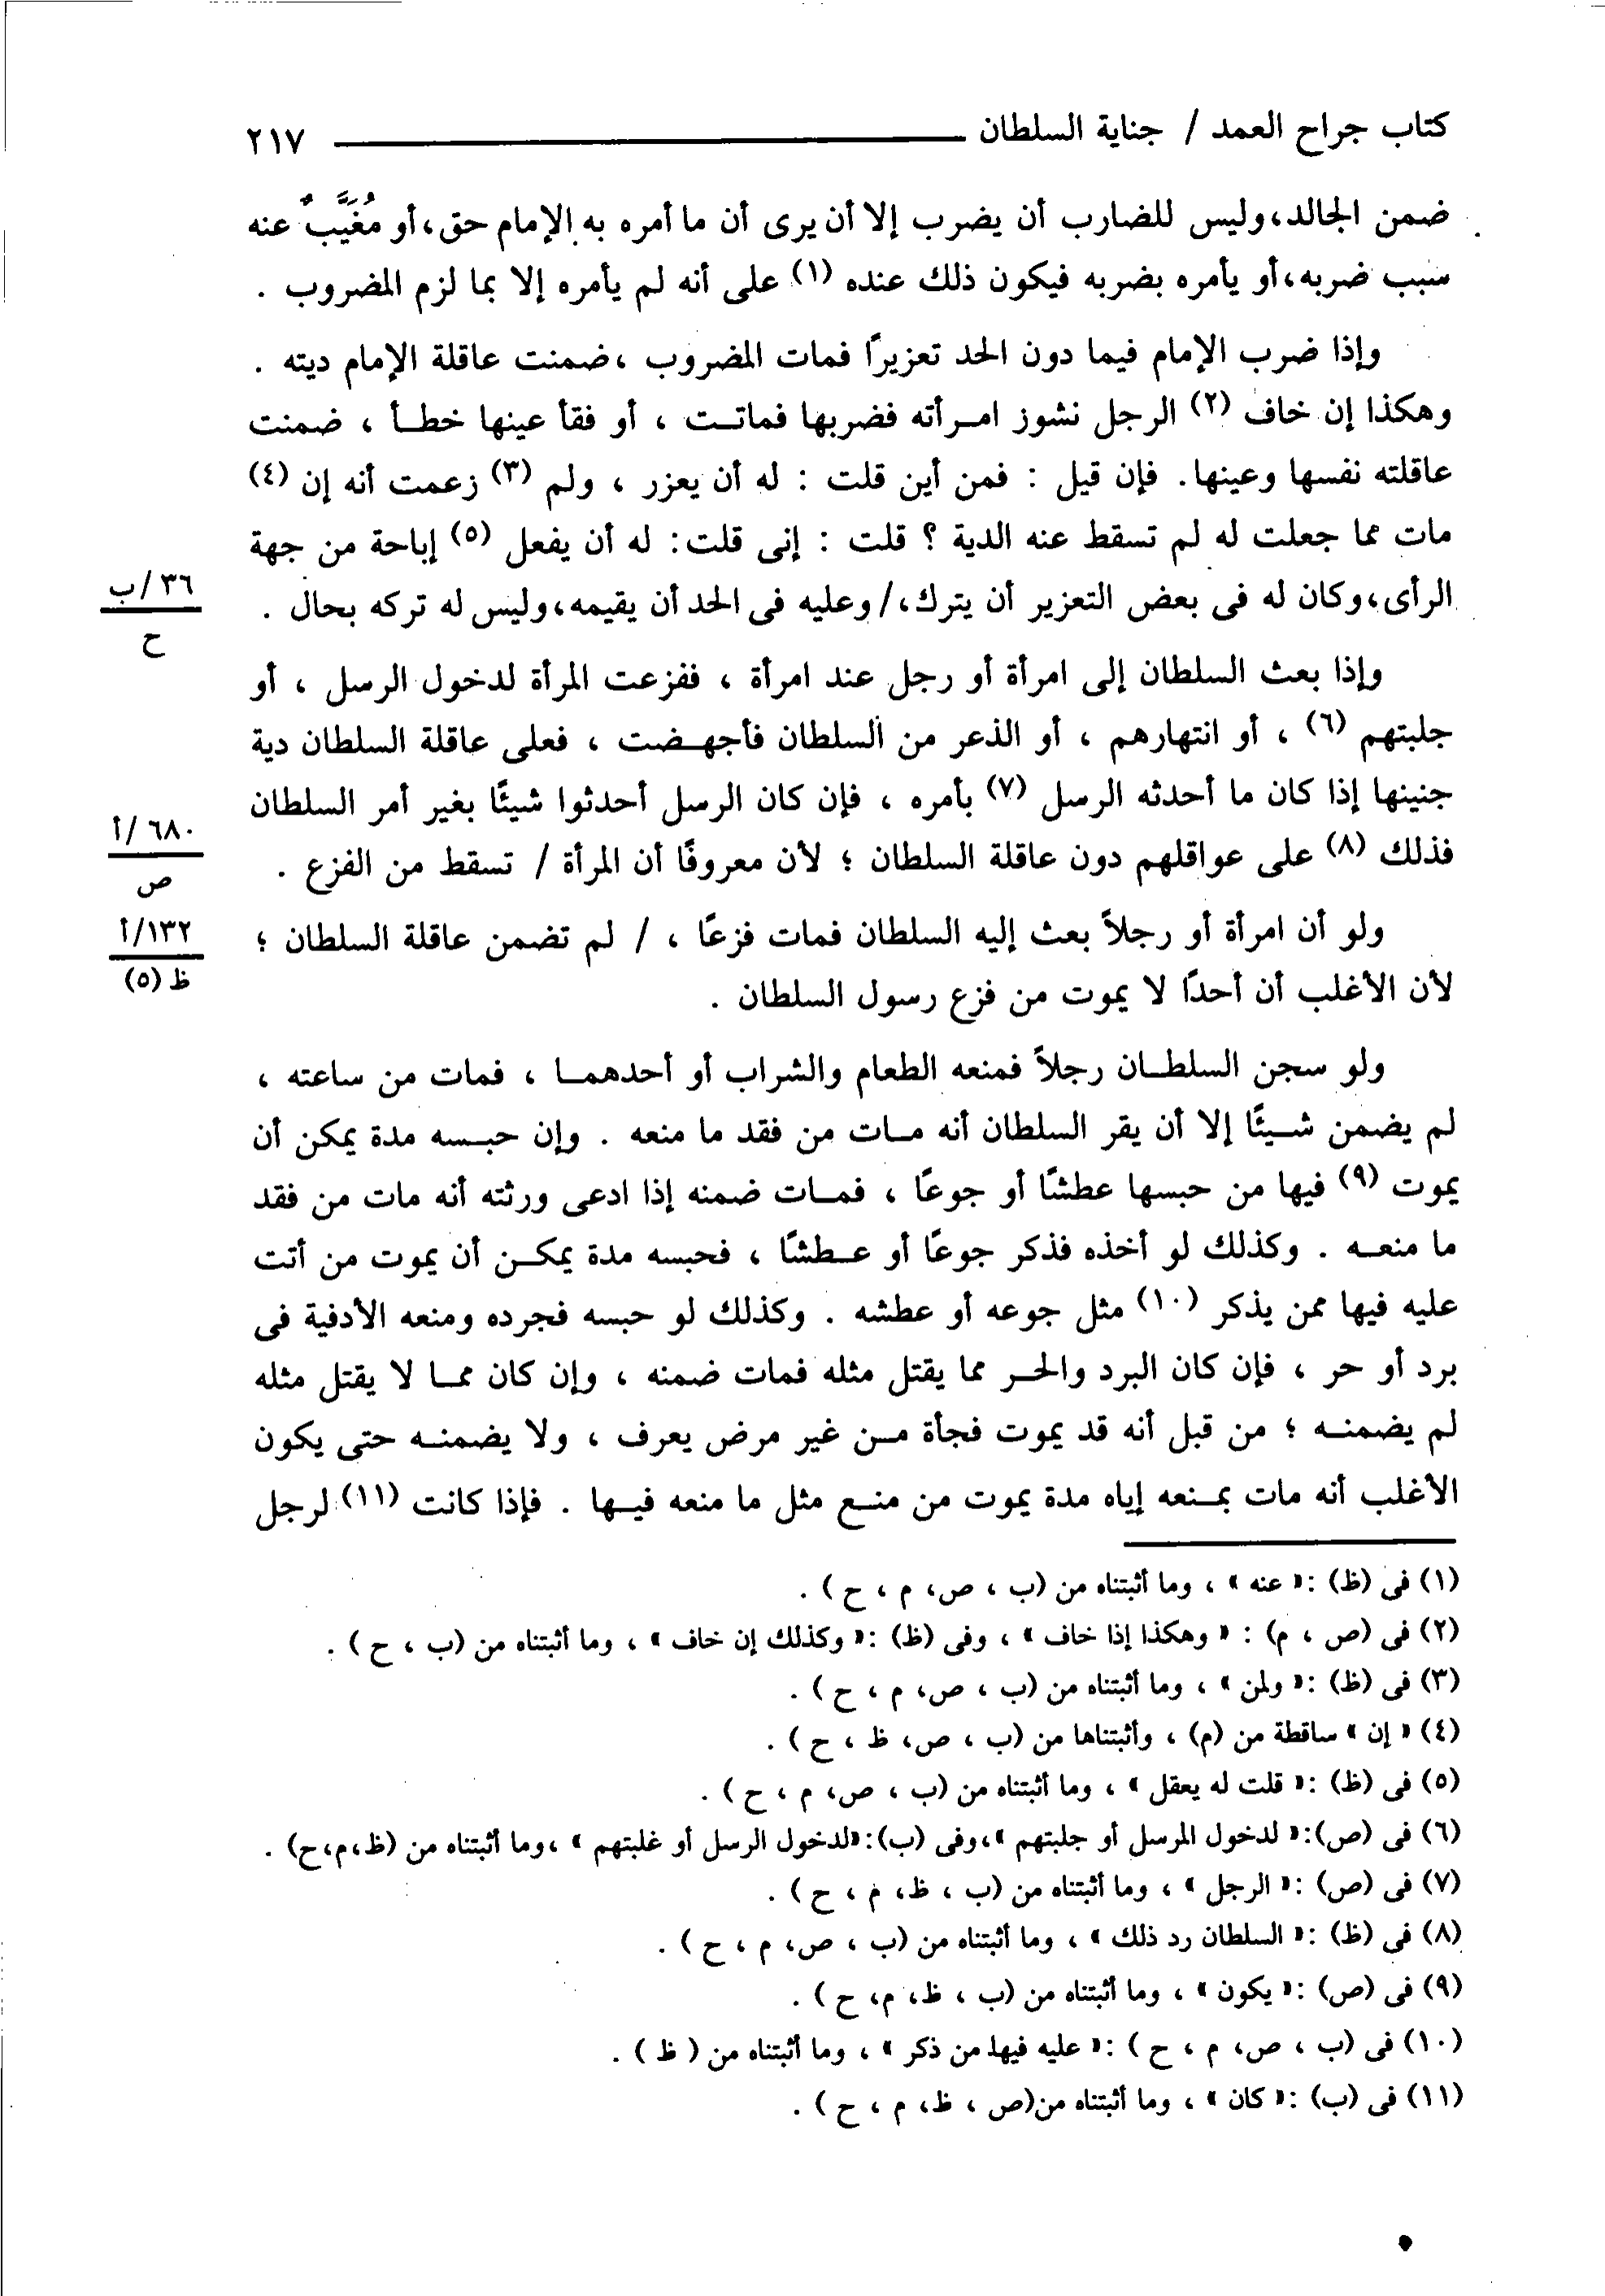 كتاب جراح العمد / جناية السلطان ٢١٧
ضمن الجالد،وليس للضارب أن يضرب إلا أن يرى أن ما أمره به الإمام حق،أو مُغَيَّبٌ عنه
سبب ضربه،أو يأمره بضربه فيكون ذلك عنده (١) على أنه لم يأمره إلا بما لزم المضروب .
وإذا ضرب الإمام فيما دون الحد تعزيرًا فمات المضروب ،ضمنت عاقلة الإمام ديته .
وهكذا إن خاف (٢) الرجل نشوز امـرأته فضربها فماتـت ، أو فقأ عينها خطـأ ، ضمنت
عاقلته نفسها وعينها. فإن قيل : فمن أين قلت : له أن يعزر ، ولم (٣) زعمت أنه إن (٤)
مات مما جعلت له لم تسقط عنه الدية ؟ قلت : إنى قلت: له أن يفعل (٥) إباحة من جهة
الرأى،وكان له فى بعض التعزير أن يترك،/وعليه فى الحد أن يقيمه،وليس له تركه بحال .
٣٦/ب
ح
وإذا بعث السلطان إلى امرأة أو رجل عند امرأة ، ففزعت المرأة لدخول الرسل ، أو
جلبتهم (٦) ، أو انتهارهم ، أو الذعر من السلطان فأجهـضت ، فعلى عاقلة السلطان دية
جنينها إذا كان ما أحدثه الرسل (٧) بأمره ، فإن كان الرسل أحدثوا شيئًا بغير أمر السلطان
فذلك (٨) على عواقلهم دون عاقلة السلطان ؛ لأن معروفًا أن المرأة / تسقط من الفزع .
٦٨٠/أ
ص
ولو أن امرأة أو رجلاً بعث إليه السلطان فمات فزعًا ، / لم تضمن عاقلة السلطان ؛
١٣٢/أ
ظ (٥)
لأن الأغلب أن أحدًا لا يموت من فزع رسول السلطان .
ولو سجن السلطـان رجلاً فمنعه الطعام والشراب أو أحدهمـا ، فمات من ساعته ،
لم يضمن شـيئًا إلا أن يقر السلطان أنه مـات من فقد ما منعه . وإن حبـسه مدة يمكن أن
يموت (٩) فيها من حبسها عطشًا أو جوعًا ، فمـات ضمنه إذا ادعى ورثته أنه مات من فقد
ما منعـه . وكذلك لو أخذه فذكر جوعًا أو عـطشًا ، فحبسه مدة يمكـن أن يموت من أتت
عليه فيها ممن يذكر (١٠) مثل جوعه أو عطشه . وكذلك لو حبسه فجرده ومنعه الأدفية فى
برد أو حر ، فإن كان البرد والحـر مما يقتل مثله فمات ضمنه ، وإن كان ممـا لا يقتل مثله
لم يضمنـه ؛ من قبل أنه قد يموت فجأة مـن غير مرض يعرف ، ولا يضمنـه حتى يكون
الأغلب أنه مات بمـنعه إياه مدة يموت من منـع مثل ما منعه فيـها . فإذا كانت (١١) لرجل
(١) فى (ظ) :« عنه » ، وما أثبتناه من (ب ، ص، م ، ح ) .
(٢) فى (ص ، م) : « وهكذا إذا خاف » ، وفى (ظ) :« وكذلك إن خاف » ، وما أثبتناه من (ب ، ح ) .
(٣) فى (ظ) :« ولمن » ، وما أثبتناه من (ب ، ص، م ، ح ) .
(٤) « إن » ساقطة من (م) ، وأثبتناها من (ب ، ص، ظ ، ح ) .
(٥) فى (ظ) :« قلت له يعقل » ، وما أثبتناه من (ب ، ص، م ، ح ) .
(٦) فى (ص):« لدخول المرسل أو جلبتهم »،وفى (ب):«لدخول الرسل أو غلبتهم » ،وما أثبتناه من (ظ،م،ح) .
(٧) فى (ص) :« الرجل » ، وما أثبتناه من (ب ، ظ، م ، ح ) .
(٨) فى (ظ) :« السلطان رد ذلك » ، وما أثبتناه من (ب ، ص، م ، ح ) .
(٩) فى (ص) :« يكون » ، وما أثبتناه من (ب ، ظ، م، ح ) .
(١٠) فى (ب ، ص، م ، ح ) :« عليه فيها من ذكر » ، وما أثبتناه من ( ظ ) .
(١١) فى (ب) :« كان » ، وما أثبتناه من(ص ، ظ، م ، ح ) .